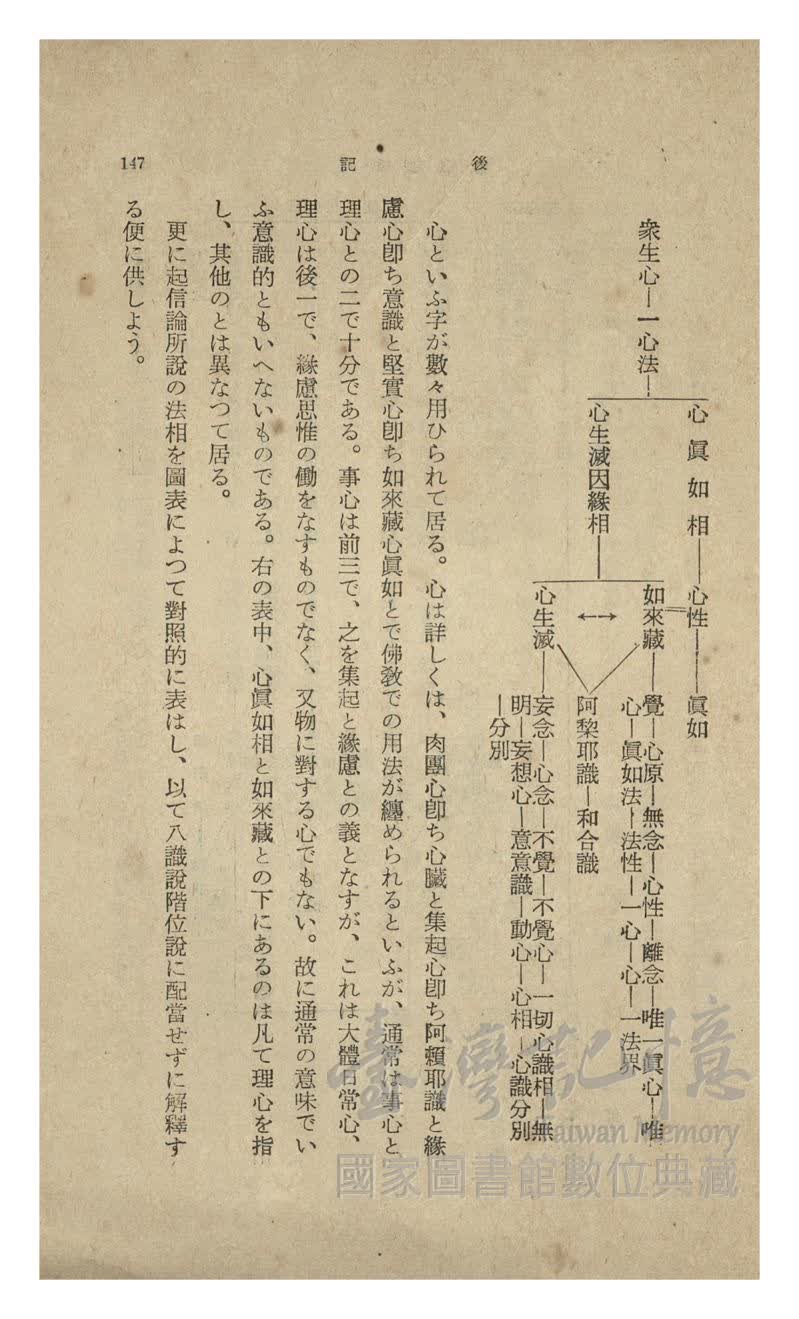 後記
147
衆生心―一心法―
心眞如相――心性――眞如
心生滅因緣相――
如來藏――覺―心原―無念―心性―離念―唯一眞心―唯
心―眞如法―法性―一心―心―一法界
←→
阿梨耶識―和合識
心生滅――妄念―心念―不覺―不覺心―一切心識相―無
明―妄想心―意意識―動心―心相―心識分別
―分別
心といふ字が數々用ひられて居る。心は詳しくは、肉團心卽ち心臟と集起心卽ち阿賴耶識と緣
慮心卽ち意識と堅實心卽ち如來藏心眞如とで佛敎での用法が纏められるといふが、通常は事心と
理心との二で十分である。事心は前三で、之を集起と緣慮との義となすが、これは大體日常心、
理心は後一で、緣慮思惟の働をなすものでなく、又物に對する心でもない。故に通常の意味でい
ふ意識的ともいへないものである。右の表中、心眞如相と如來藏との下にあるのは凡て理心を指
し、其他のとは異なつて居る。
更に起信論所說の法相を圖表によつて對照的に表はし、以て八識說階位說に配當せずに解釋す
る便に供しよう。
臺灣記憶
Taiwan Memory
國家圖書館數位典藏